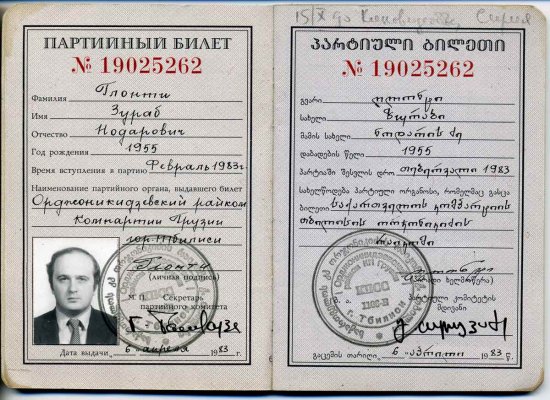 15/X
ПАРТИЙНЫЙ БИЛЕТ
№ 19025262
Фамилия Глонти
Имя Зураб
Отчество Нодарович
Год рождения 1955
Время вступления в партию Февраль 1983г
Наименование партийного органа, выдавшего билет
Орджоникидзевский райком
Компартии Грузии
гор. Тбилиси
Глонти
(личная подпись)
М. П. Секретарь
партийного комитета
Дата выдачи 6 апреля 1983 г.
ᲞᲐᲠᲢᲘᲣᲚᲘ ᲑᲘᲚᲔᲗᲘ
№ 19025262
გვარი ღლონტი
სახელი ზურაბი
მამის სახელი ნოდარის ძე
დაბადების წელი 1955
პარტიაში შესვლის დრო თებერვალი 1983
სახელწოდება პარტიული ორგანოსი, რომელმაც გასცა
ბილეთი საქართველოს კომპარტიის
თბილისის ორჯონიკიძის
რაიკომი
ღლონტი
(პირადი ხელმოწერა)
პარტიული კომიტეტის
მდივანი
გაცემის თარიღი 6 აპრილი 1983 წ.
КПСС
г. Тбилиси